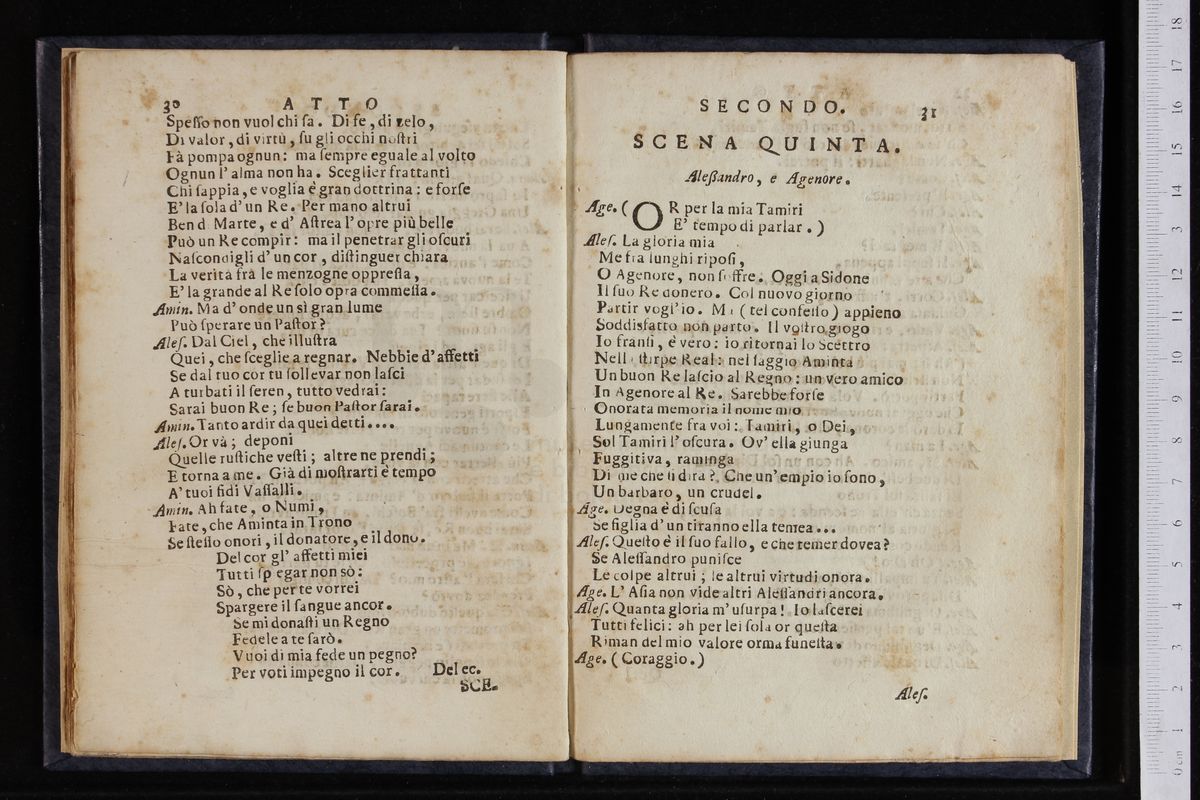 30 ATTO
Speſſo non vuol chi ſa. Di fe, di zelo,
Di valor, di virtù, ſu gli occhi noſtri
Fà pompa ognun: ma ſempre eguale al volto
Ognun l' alma non ha. Sceglier frattanti
Chi ſappia, e voglia è gran dottrina: e forſe
E' la ſola d' un Re. Per mano altrui
Ben d Marte, e d' Aſtrea l' opre più belle
Può un Re compir: ma il penetrar gli oſcuri
Naſcondigli d' un cor, diſtinguer chiara
La verità frà le menzogne oppreſſa,
E' la grande al Re ſolo opra commeſſa.
Amin. Ma d' onde un sì gran lume
Può ſperare un Paſtor?
Aleſ. Dal Ciel, che illuſtra
Quei, che ſceglie a regnar. Nebbie d' affetti
Se dal tuo cor tu ſollevar non laſci
A turbati il ſeren, tutto vedrai:
Sarai buon Re; ſe buon Paſtor ſarai.
Amin. Tanto ardir da quei detti....
Aleſ. Or và; deponi
Quelle ruſtiche veſti; altre ne prendi;
E torna a me. Già di moſtrarti è tempo
A' tuoi fidi Vaſſalli.
Amin. Ah fate, o Numi,
Fate, che Aminta in Trono
Se ſteſſo onori, il donatore, e il dono.
Del cor gl' affetti miei
Tutti ſp egar non sò:
Sò, che per te vorrei
Spargere il ſangue ancor.
Se mi donaſti un Regno
Fedele a te ſarò.
Vuoi di mia fede un pegno?
Per voti impegno il cor. Del ec.
SCE.
SECONDO. 31
SCENA QUINTA.
Aleßandro, e Agenore.
Age. (OR per la mia Tamiri
E' tempo di parlar.)
Aleſ. La gloria mia
Me fra lunghi ripoſi,
O Agenore, non ſoffre. Oggi a Sidone
Il ſuo Re donero. Col nuovo giorno
Partir vogl' io. M (tel confeſſo) appieno
Soddisfatto non parto. Il voſtro giogo
Io franſi, è vero: io ritornai lo Scettro
Nell ſtirpe Real: nel ſaggio Aminta
Un buon Re laſcio al Regno: un vero amico
In Agenore al Re. Sarebbe forſe
Onorata memoria il nome mio
Lungamente fra voi: Tamiri, o Dei,
Sol Tamiri l' oſcura. Ov' ella giunga
Fuggitiva, raminga
Di me che ſi dirà? Che un' empio io ſono,
Un barbaro, un crudel.
Age. Degna è di ſcuſa
Se figlia d' un tiranno ella temea...
Aleſ. Queſto è il ſuo fallo, e che temer dovea?
Se Aleſſandro puniſce
Le colpe altrui; le altrui virtudi onora.
Age. L' Aſia non vide altri Aleſſandri ancora.
Aleſ. Quanta gloria m' uſurpa! Io laſcerei
Tutti felici: ah per lei ſola or queſta
Riman del mio valore orma funeſta.
Age. (Coraggio.)
Aleſ.
0 cm 1 2 3 4 5 6 7 8 9 10 11 12 13 14 15 16 17 18